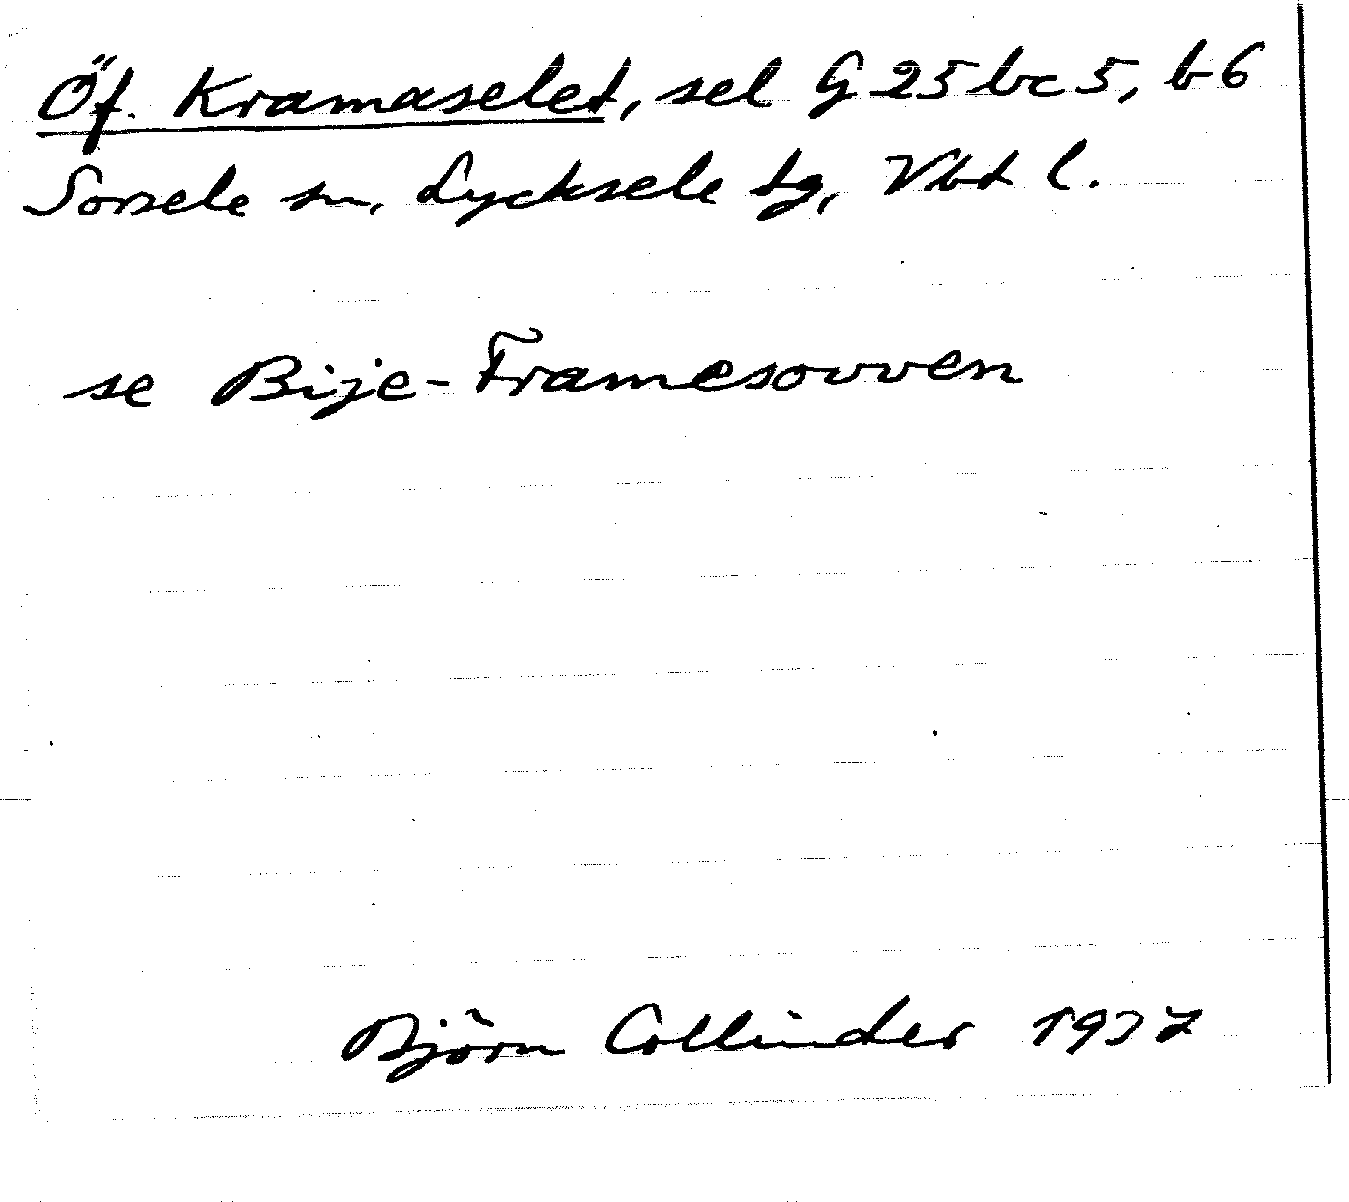 Öf. Kramaselet, sel G 25 bc 5, b 6
Sorsele sn, Lycksele tg, Vbt l.
se Bije-Framesovven
Björn Collinder 1937